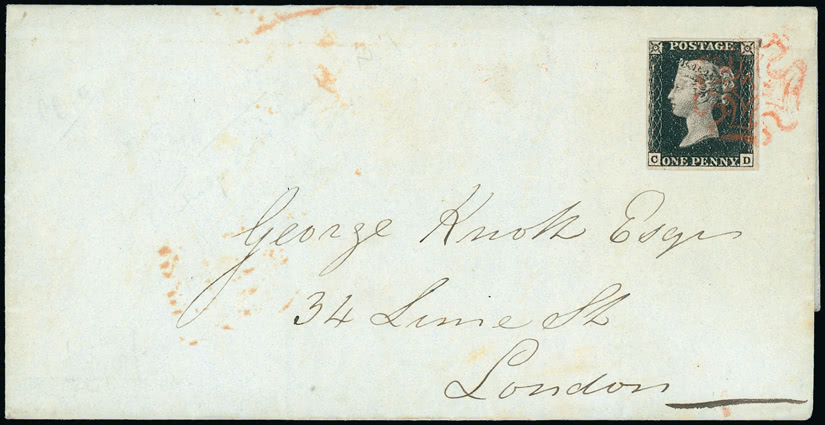 POSTAGE
C ONE PENNY D
George Knott Esqr
34 Lime St
London